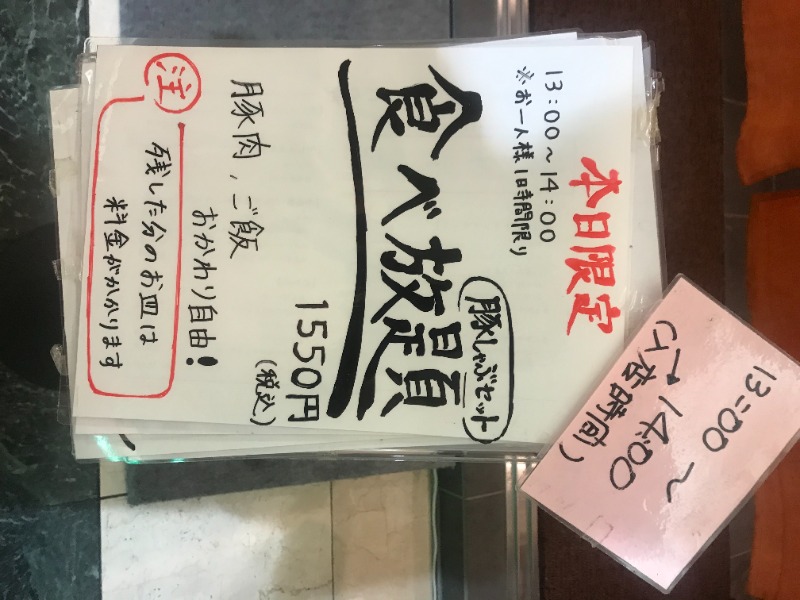 本日限定
13:00～14:00
※お一人様1時間限り
豚しゃぶセット
食べ放題
1550円
(税込)
豚肉、ご飯
おかわり自由!
注
残した分のお皿は
料金がかかります
13:00～
→14:00
(入店時間)